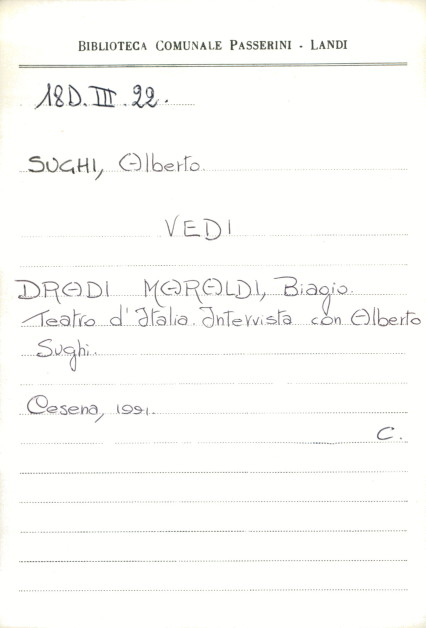 BIBLIOTECA COMUNALE PASSERINI - LANDI
18D.III.22.
SUGHI, Alberto.
VEDI
DRADI MARALDI, Biagio.
Teatro d'Italia. Intervista con Alberto
Sughi.
Cesena, 1991.
C.